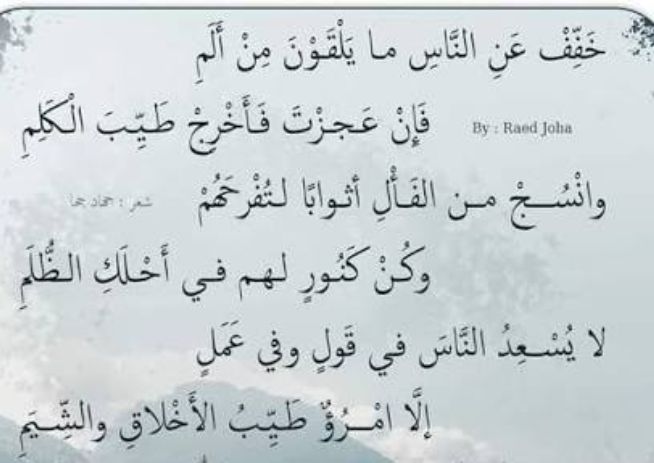 خَفِّفْ عَنِ النَّاسِ ما يَلْقَوْنَ مِنْ أَلَمِ
فَإِنْ عَجزْتَ فَأَخْرِجْ طَيِّبَ الْكَلِمِ
By : Raed Joha
وانْسُجْ من الفَأْلِ أثوابًا لتُفْرِحَهُمْ
شعر : جهاد جحا
وكُنْ كَنُورٍ لهم في أَحْلَكِ الظُّلَمِ
لا يُسْعِدُ النَّاسَ في قَولٍ وفي عَمَلٍ
إلَّا امْرُؤٌ طَيِّبُ الأَخْلاقِ والشِّيَمِ